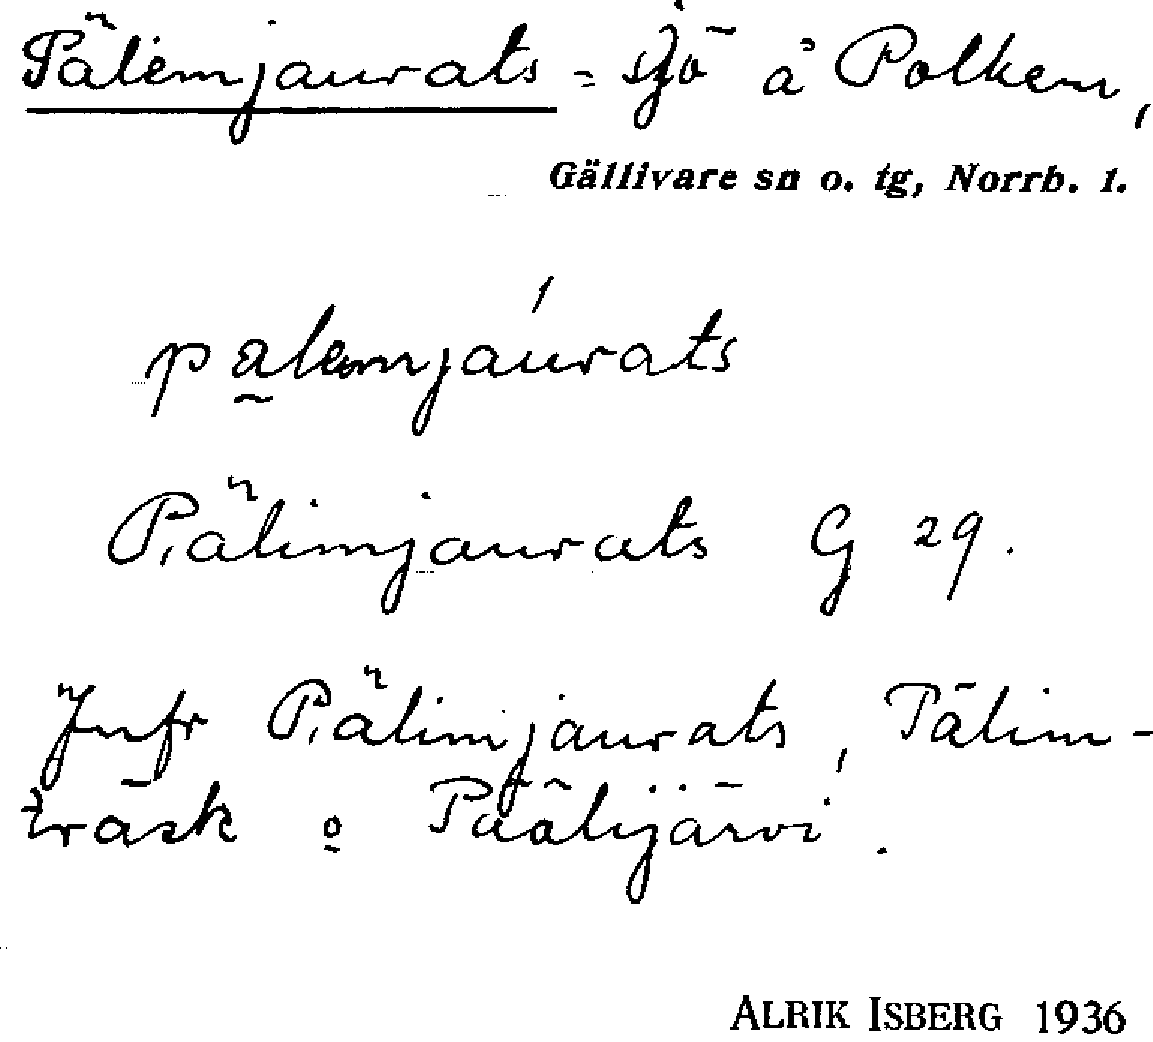 Pälemjaurats = sjö å Polkem,
Gällivare sn o. tg, Norrb. l.
palemjaurats
Piälimjaurats G 29.
Jmfr Piälimjaurats, Pälim-
träsk o Päälijärvi.
ALRIK ISBERG 1936